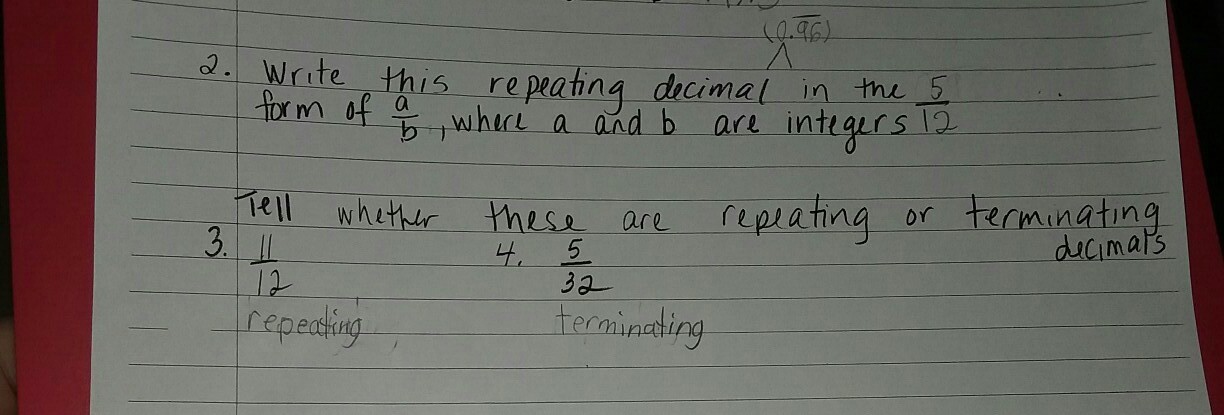 (0.9̅6̅)
2. Write this repeating decimal in the 5/12
form of a/b, where a and b are integers
Tell whether these are repeating or terminating decimals
3. 11/12 4. 5/32
repeating terminating